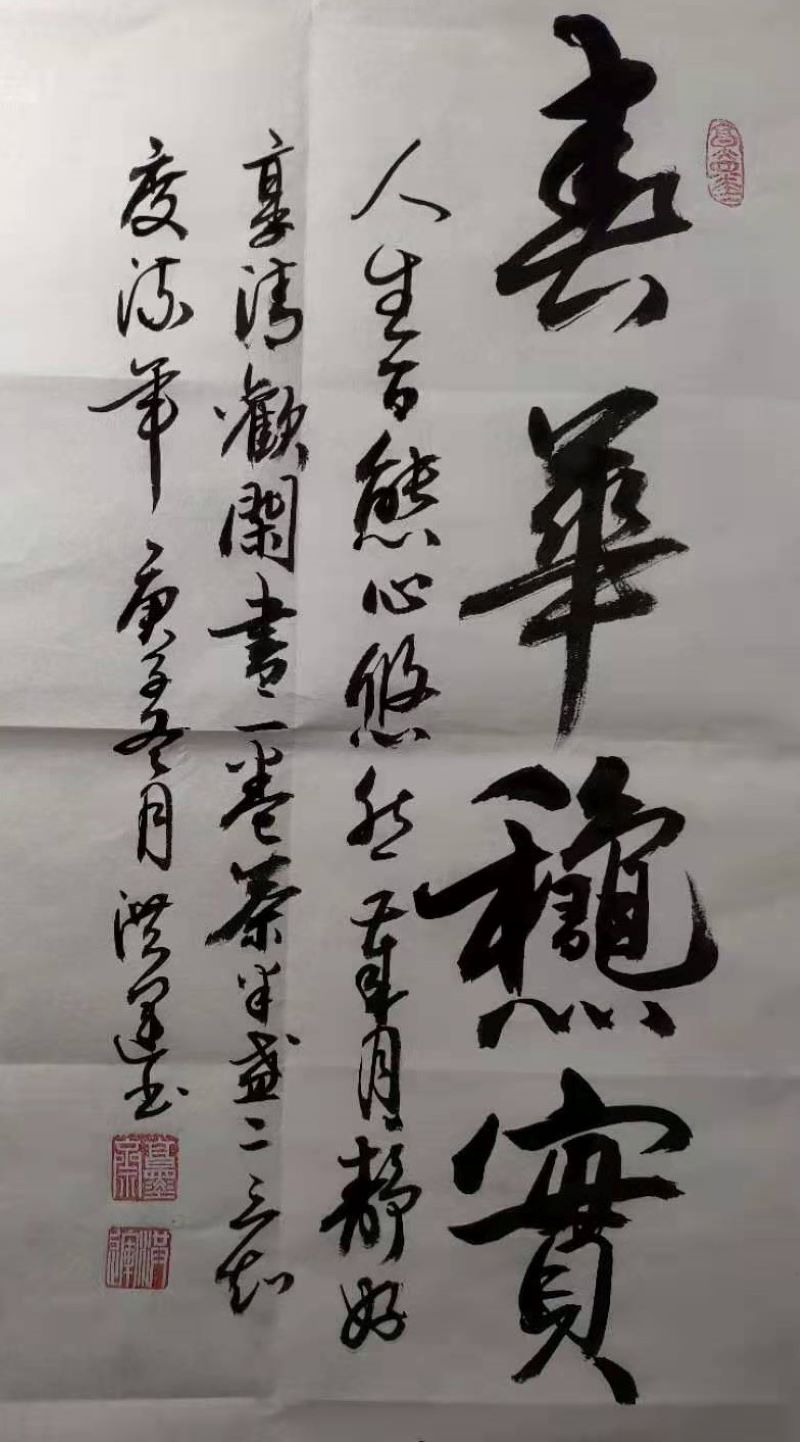 春華穐實
人生百態心悠然歲月靜好
享清歡閑書一卷茶半盞二三知
度流年 庚子冬月 洪運書